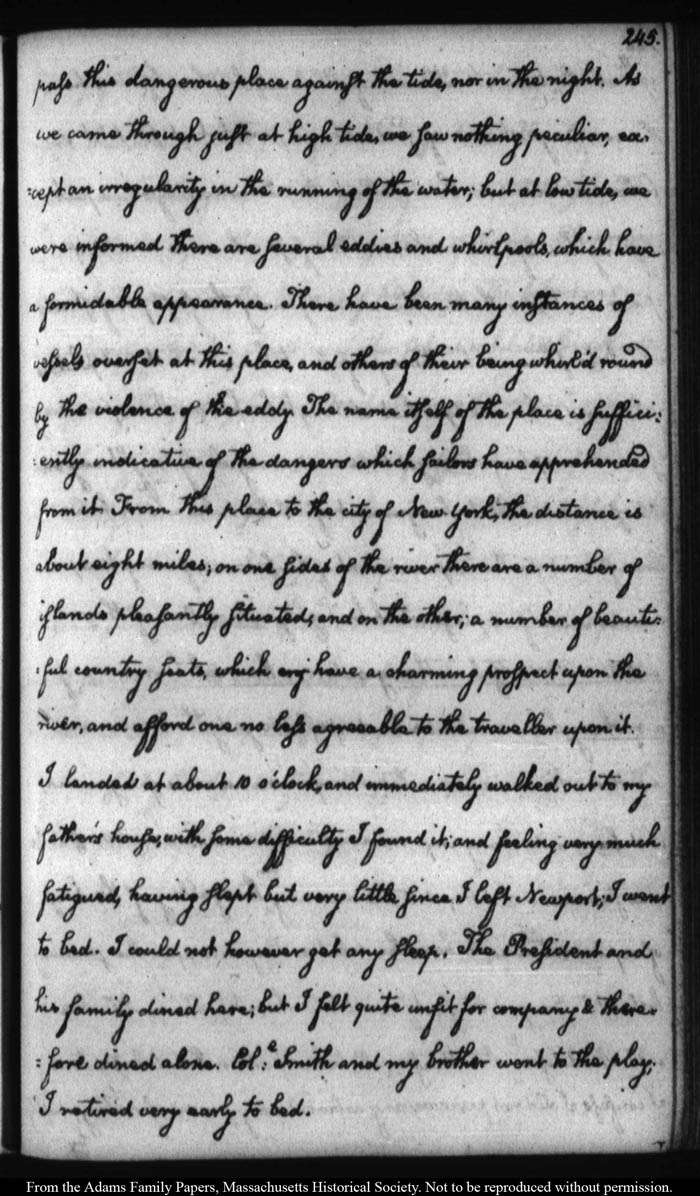 245.
pass this dangerous place against the tide, nor in the night. As
we came through just at high tide, we saw nothing peculiar, ex-
=cept an irregularity in the running of the water; but at low tide, we
were informed there are several eddies and whirlpools, which have
a formidable appearance. There have been many instances of
vessels overset at this place, and others of their being whirl'd round
by the violence of the eddy. The name itself of the place is suffici:
:ently indicative of the dangers which sailors have apprehended
from it. From this place to the city of New York, the distance is
about eight miles; on one sides of the river there are a number of
islands pleasantly situated, and on the other, a number of beauti:
:ful country seats, which enj have a charming prospect upon the
river, and afford one no less agreeable to the traveller upon it.
I landed at about 10 o'clock, and immediately walked out to my
father's house, with some difficulty I found it; and feeling very much
fatigued, having slept but very little since I left Newport; I went
to bed. I could not however get any sleep. The President and
his family dined here; but I felt quite unfit for company & there=
=fore dined alone. Col:e Smith and my brother went to the play;
I retired very early to bed.
From the Adams Family Papers, Massachusetts Historical Society. Not to be reproduced without permission.